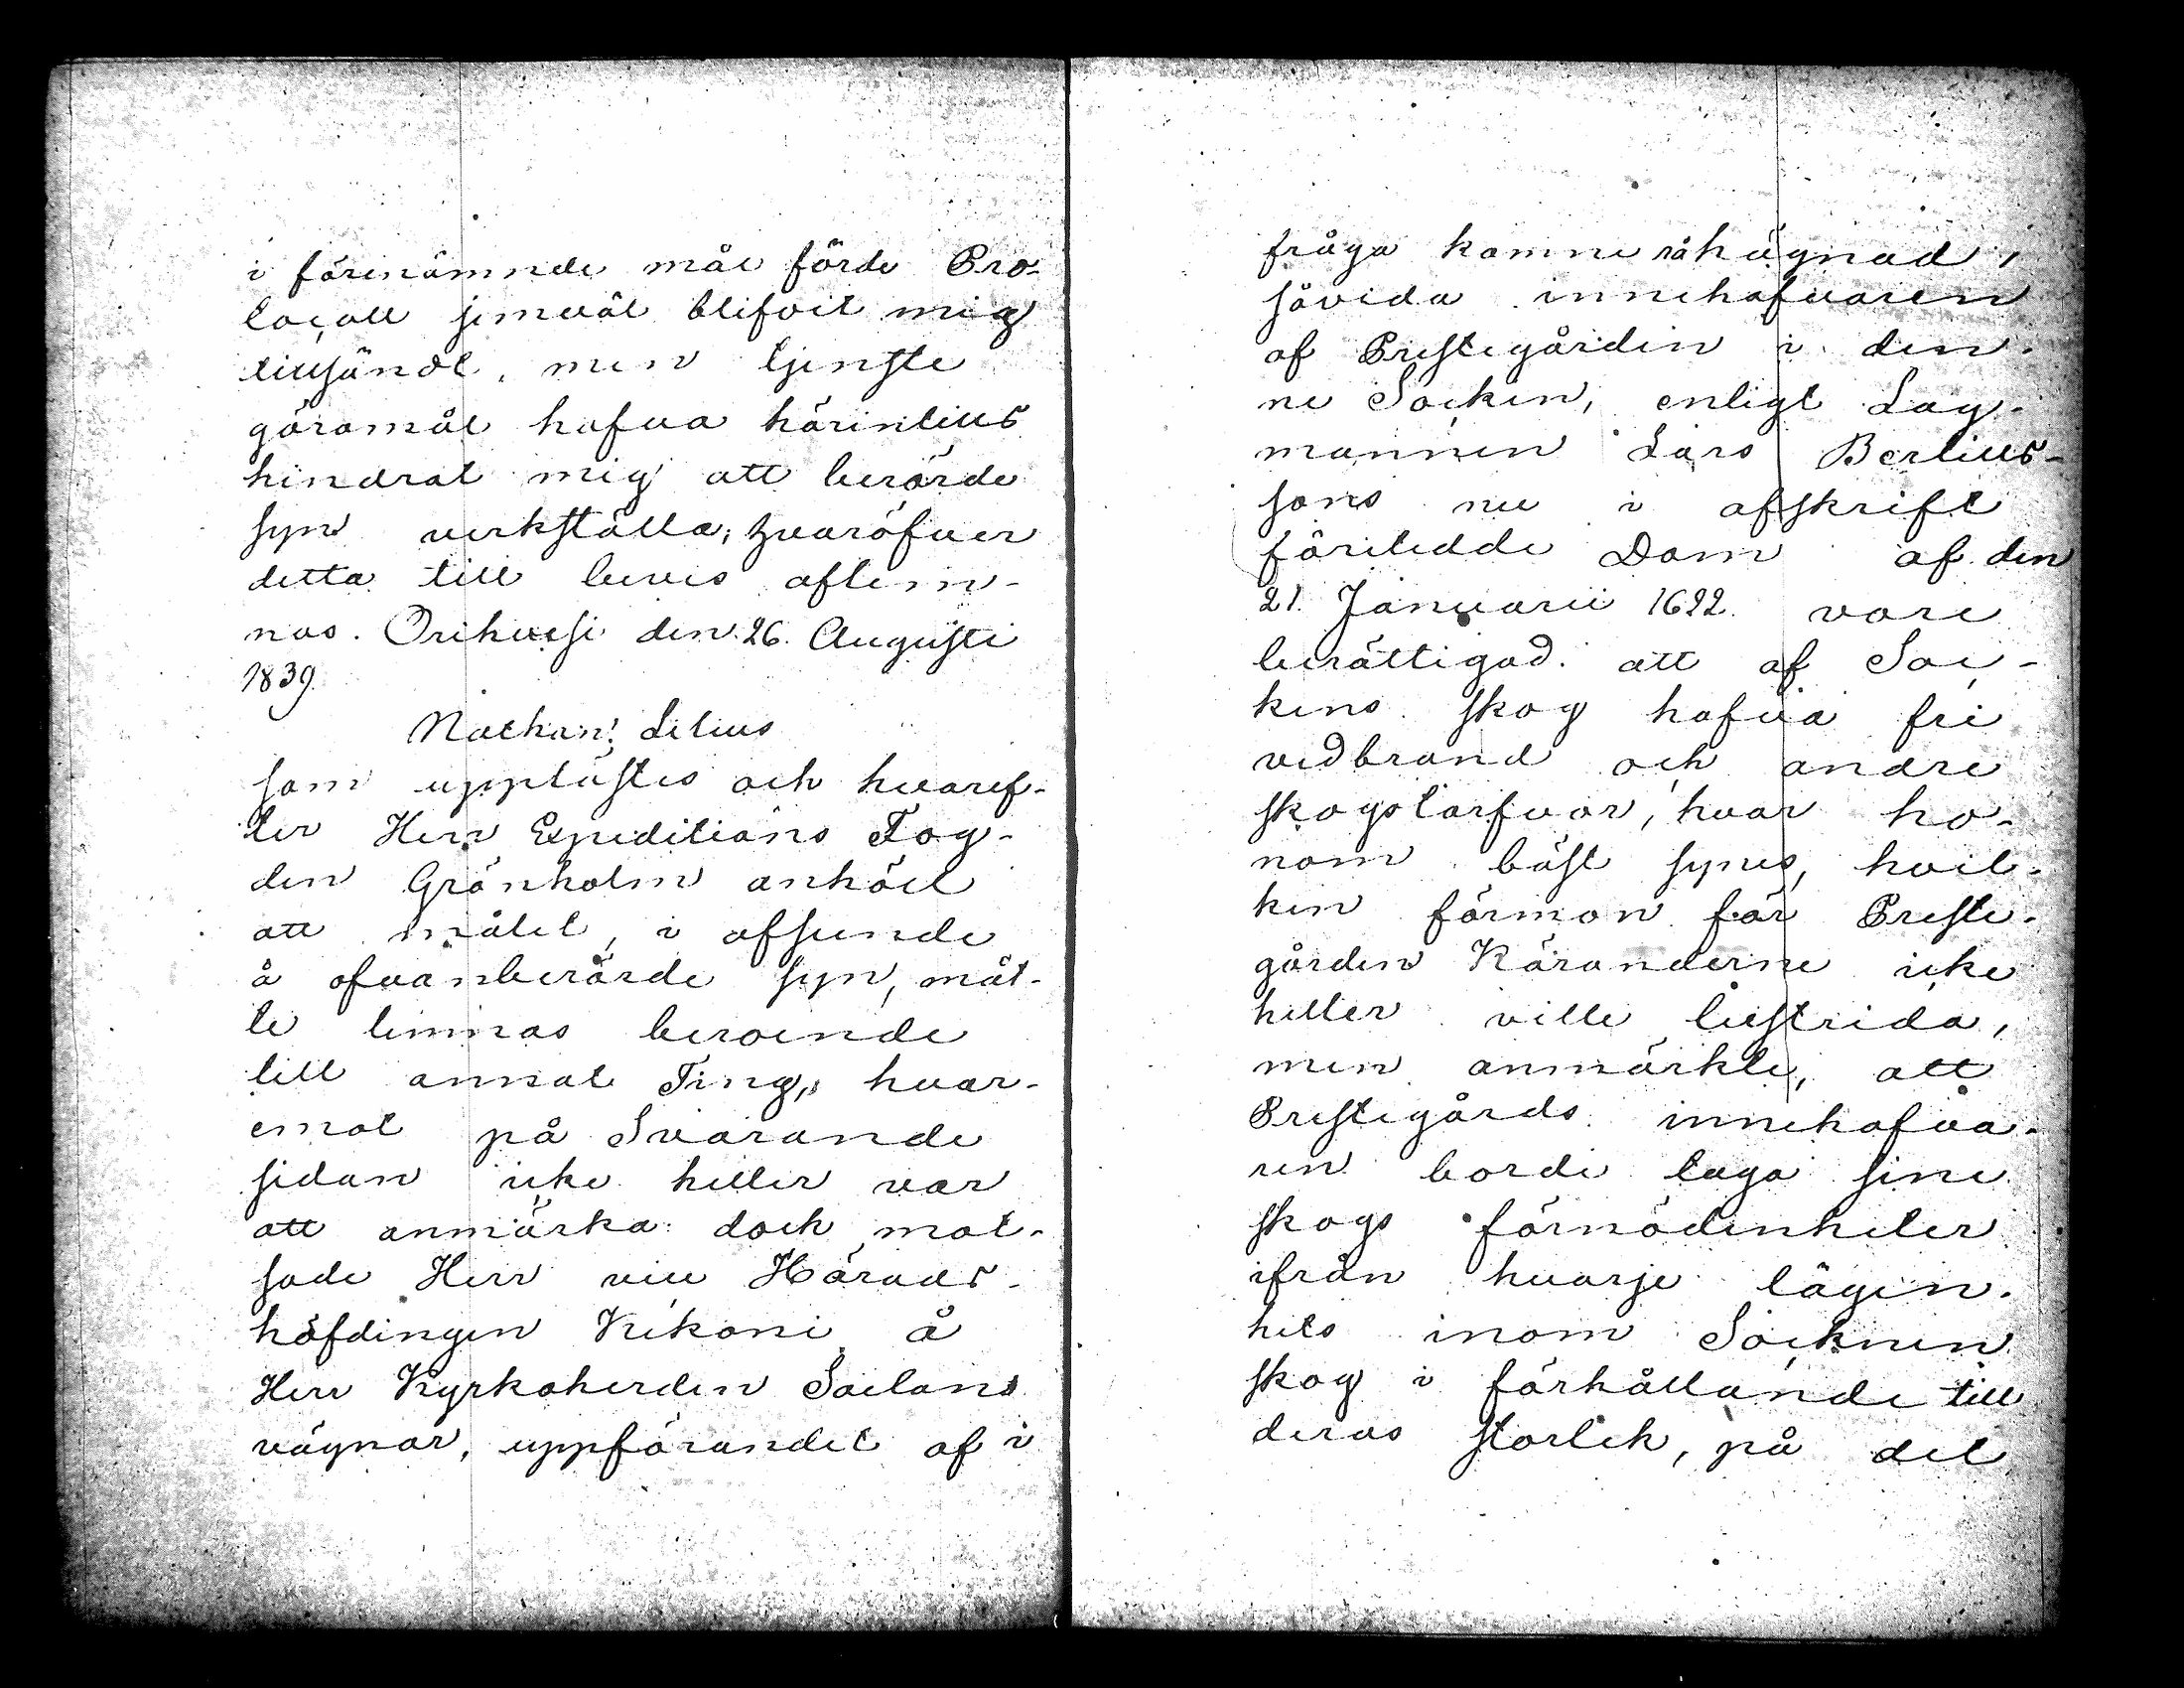 i förenämnde mål förde Pro-
tocoll jemväl blifvit mig
tillsändt, men tjenste
göromål hafva härintills
hindrat mig att berörde
syn verkställa; hvaröfver
detta till bevis aflem-
nas. Orihvesi den 26. Augusti
1839.
Nathan. Lilius
som upplästes och hvaref-
ter Herr Expeditions Fog-
den Grönholm anhöll
att målet, i afseende
å ofvanberörde syn, måt-
te lemnas beroende
till annat Ting, hvar-
emot på Svarande
sidan icke heller var
att anmärka: doch mot-
sade Herr vice Härads-
höfdingen Kikoni å
Herr Kyrkoherden Sacklens
vägnar, uppförandet af i
fråga komne råhägnad,
såvida innehafvaren
af Prestegården i den-
ne Socken, enligt Lag-
mannen Lars Bertills-
sons nu i afskrift
företedde Dom af den
21. Januarii 1622. vore
berättigad att af Soc-
kens skog hafva fri
vedbrand och andre
skogstarfvor, hvar ho-
nom bäst synes, hvil-
ken förmon för Preste-
gården Käranderne icke
heller ville bestrida,
men anmärkte, att
Prestegårds innehafva-
ren borde taga sine
skogs förnödenheter
ifrån hvarje lägen-
hets inom Socknen
skog i förhållande till
deras storlek, på det